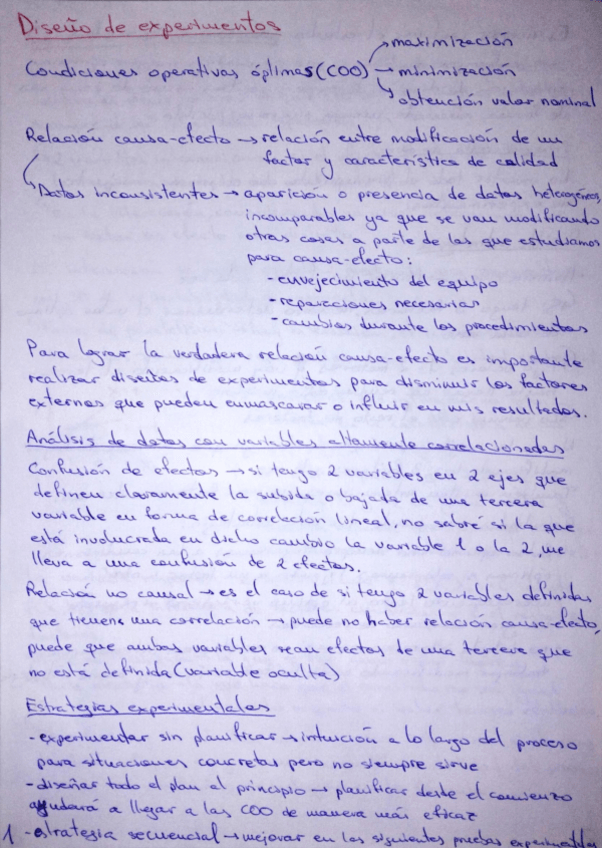 Diseño de experimentos
Condiciones operativas óptimas (COO) → maximización
→ minimización
→ obtención valor nominal
Relación causa-efecto → relación entre modificación de un
factor y característica de calidad
Datos inconsistentes → aparición o presencia de datos heterogéneos,
incomparables ya que se van modificando
otras cosas a parte de las que estudiamos
para causa-efecto:
- envejecimiento del equipo
- reparaciones necesarias
- cambios durante los procedimientos
Para lograr la verdadera relación causa-efecto es importante
realizar diseños de experimentos para disminuir los factores
externos que pueden enmascarar o influir en mis resultados.
Análisis de datos con variables altamente correlacionadas
Confusión de efectos → si tengo 2 variables en 2 ejes que
definen claramente la subida o bajada de una tercera
variable en forma de correlación lineal, no sabré si la que
está involucrada en dicho cambio la variable 1 o la 2, me
lleva a una confusión de 2 efectos.
Relación no causal → es el caso de si tengo 2 variables definidas
que tienens una correlación → puede no haber relación causa-efecto,
puede que ambas variables sean efectos de una tercera que
no está definida (variable oculta)
Estrategias experimentales
- experimentar sin planificar → intuición a lo largo del proceso
para situaciones concretas pero no siempre sirve
- diseñar todo el plan al principio → planificar desde el comienzo
ayudará a llegar a las COO de manera más eficaz
1 - estrategia secuencial → mejorar en las siguientes pruebas experimentales